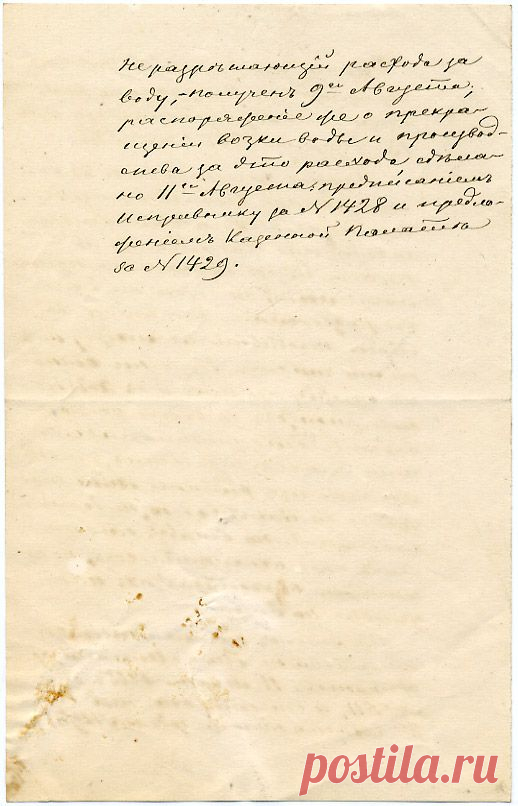 не разрѣшающій расхода за
воду, – полученъ 9го Августа;
распоряженіе же о прекра-
щеніи возки воды и производ-
ства за это расхода сдѣла-
но 11го Августа: предписаніемъ
Исправнику за N 1428 и предло-
женіемъ Казенной Палатѣ
за N 1429.
postila.ru